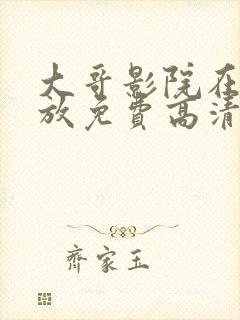 大哥影院在
放免费高清
齐家玉